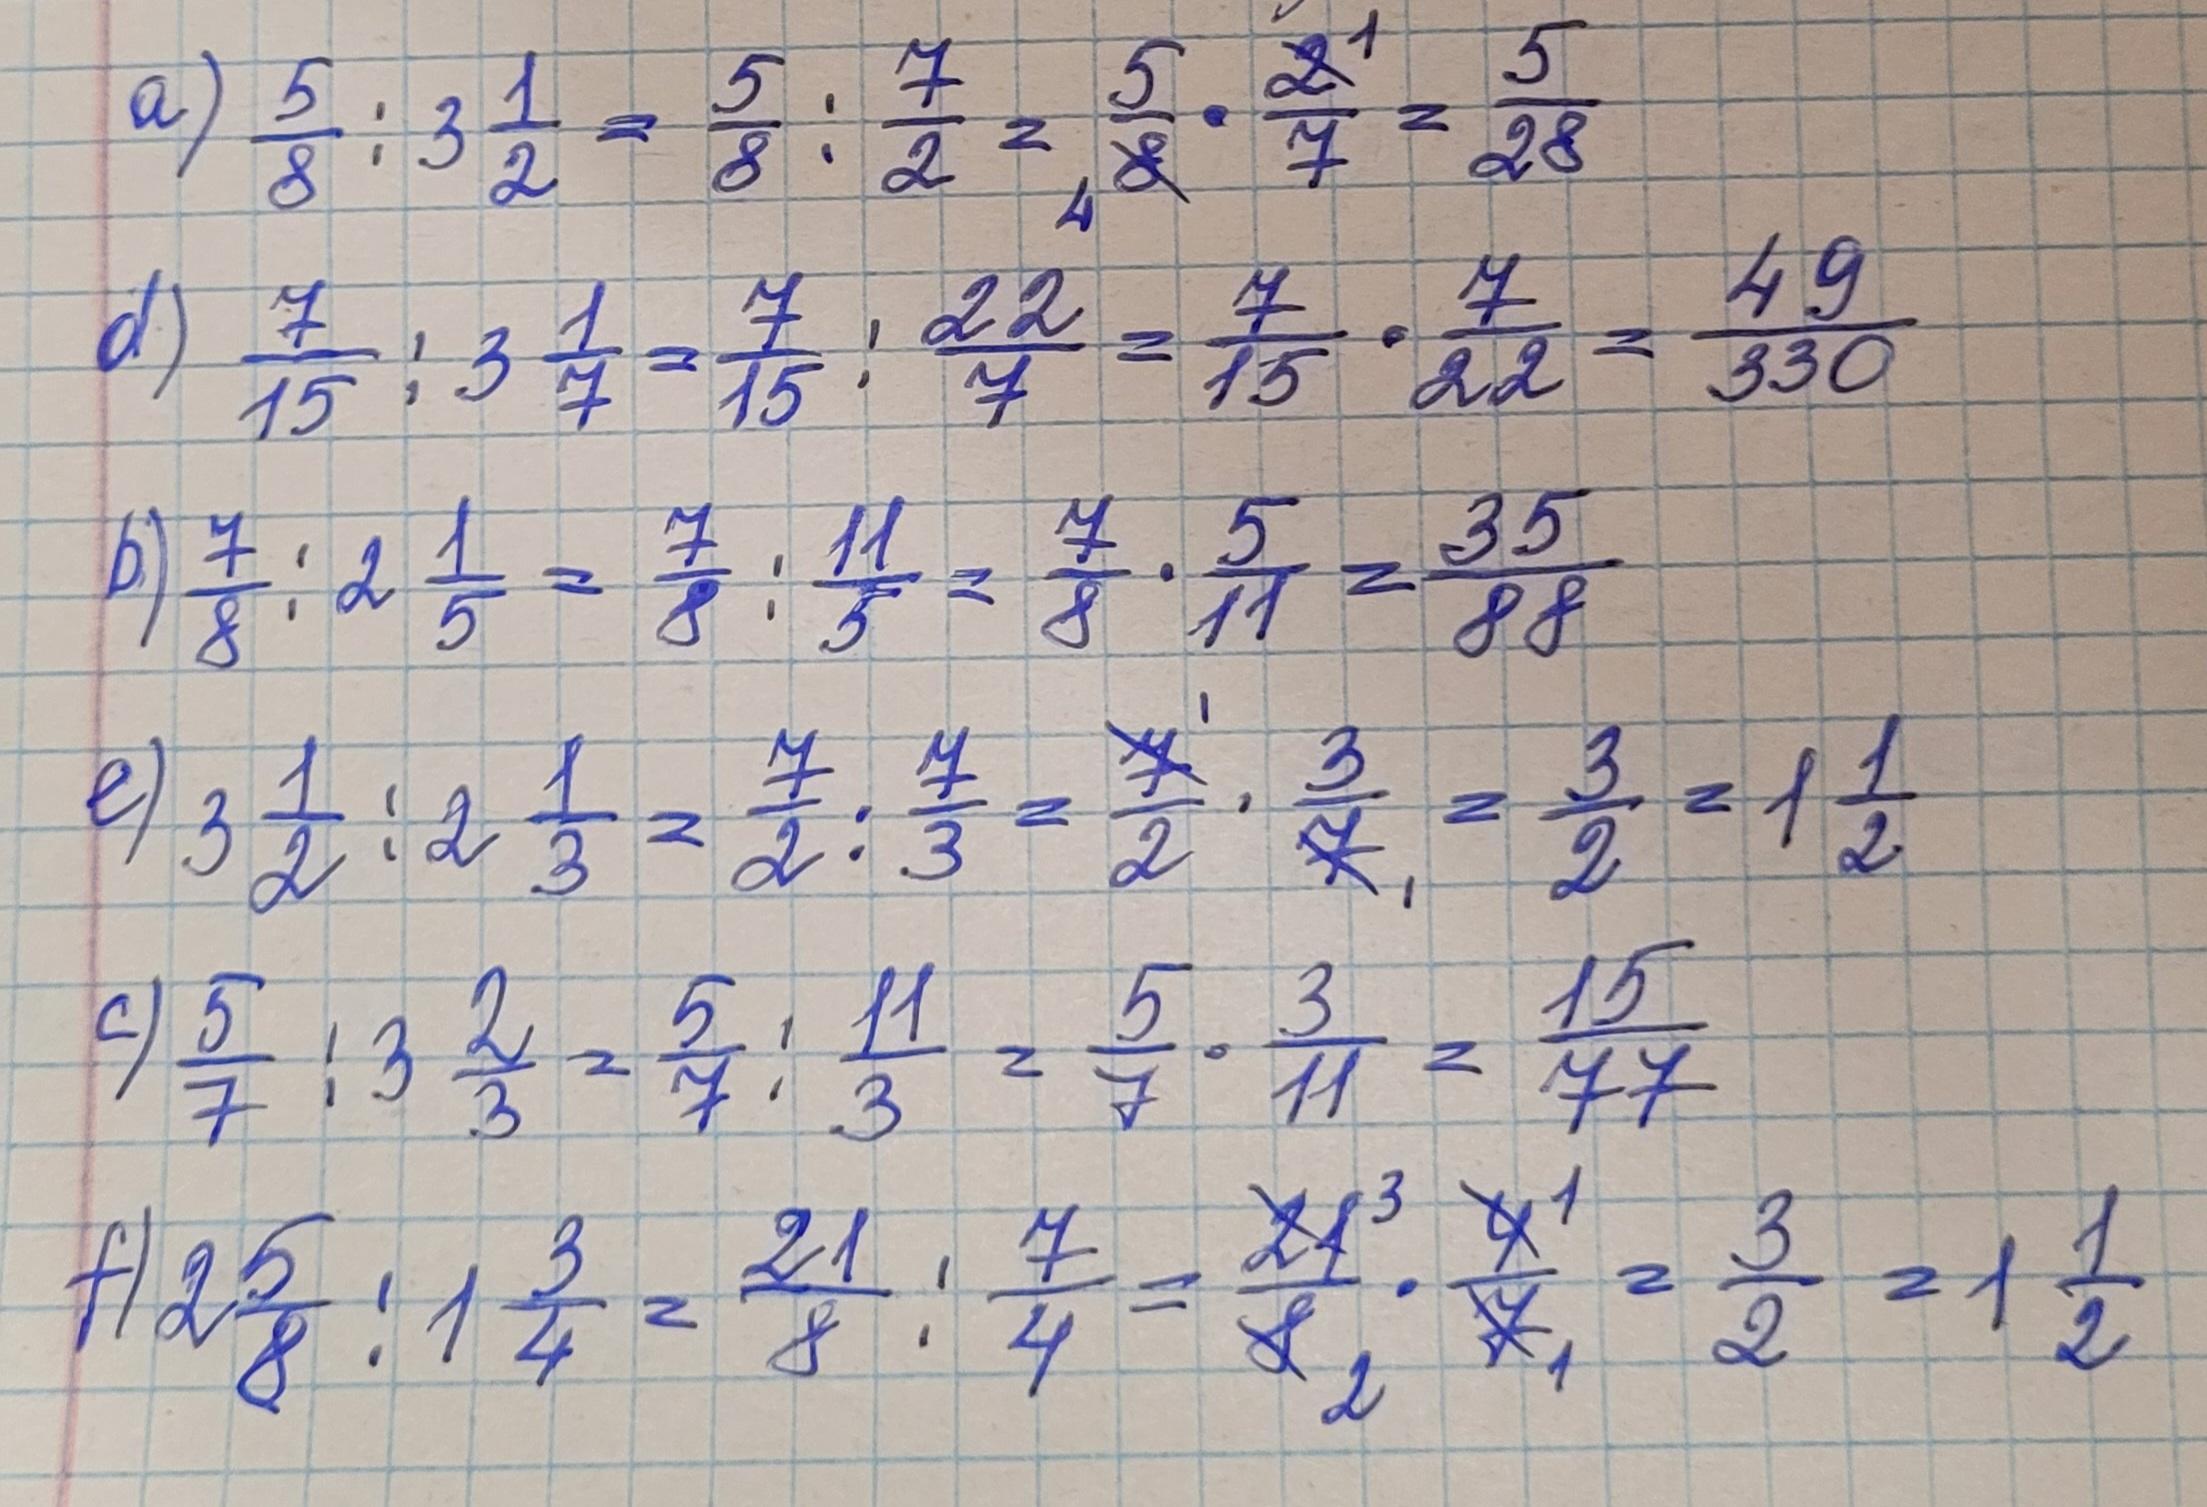 a) 5/8 : 3 1/2 = 5/8 : 7/2 = 5/8 4 · 2/7 1 = 5/28
d) 7/15 : 3 1/7 = 7/15 : 22/7 = 7/15 · 7/22 = 49/330
b) 7/8 : 2 1/5 = 7/8 : 11/5 = 7/8 · 5/11 = 35/88
e) 3 1/2 : 2 1/3 = 7/2 : 7/3 = 7/2 1 · 3/7 1 = 3/2 = 1 1/2
c) 5/7 : 3 2/3 = 5/7 : 11/3 = 5/7 · 3/11 = 15/77
f) 2 5/8 : 1 3/4 = 21/8 : 7/4 = 21/8 3 2 · 4/7 1 1 = 3/2 = 1 1/2